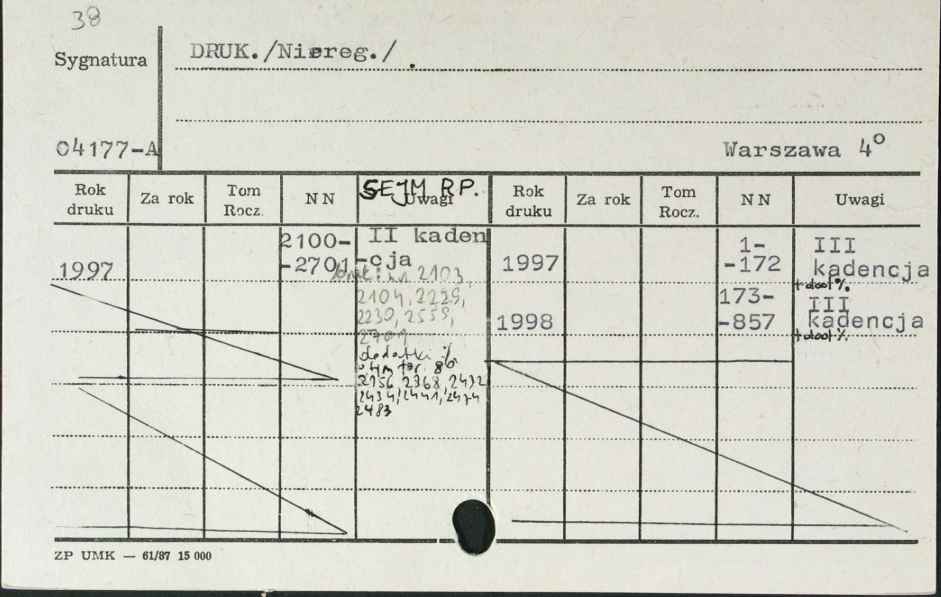 38
Sygnatura
DRUK./Niereg./
04177-A
Warszawa 4°
SEJM RP.
Rok druku Za rok Tom Rocz. NN Uwagi Rok druku Za rok Tom Rocz. NN Uwagi
2100- II kaden 1- III
1997 -2701 -cja 1997 -172 kadencja
2103, + dod %
2104, 2229, 173- III
2230, 2559, 1998 -857 kadencja
2701 + dod %
dodatki %
2156, 2368, 2432
2434, 2441, 2474
2483
ZP UMK — 61/87 15 000